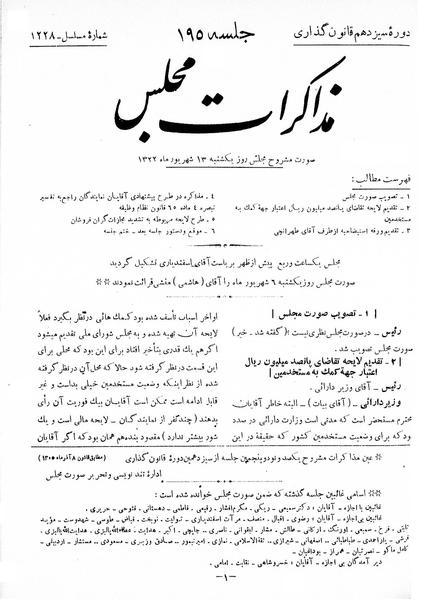 دورهٔ سیزدهم قانون گذاری
جلسه ۱۹۵
شمارهٔ مسلسل - ۱۲۲۸
مذاکرات مجلس
صورت مشروح مجلس روز یکشنبه ۱۳ شهریور ماه ۱۳۲۲
فهرست مطالب:
۱ - تصویب صورت مجلس
۲ - تقدیم لایحه تقاضای پانصد میلیون ریال اعتبار جههٔ کمك به
مستخدمین
۳ - تقدیم ورقه استیضاحیه از طرف آقای طهرانچی
۴ - مذاکره در طرح پیشنهادی آقایان نمایندگان راجع به تفسیر
تبصره ۴ ماده ۶۵ قانون نظام وظیفه
۵ - طرح لایحه مربوطه به تشدید مجازات گران فروشان
۶ - موقع و دستور جلسه بعد - ختم جلسه
مجلس یکساعت و ربع پیش از ظهر بریاست آقای اسفندیاری تشکیل گردید
صورت مجلس روز یکشنبه ۶ شهریور ماه را آقای (هاشمی) منشی قرائت نمودند
| ۱ - تصویب صورت مجلس |
رئیس - در صورت مجلس نظری نیست؛ (گفته شد - خیر)
صورت مجلس تصویب شد.
| ۲ - تقدیم لایحه تقاضای پانصد میلیون ریال
اعتبار جههٔ کمك به مستخدمین |
رئیس - آقای وزیر دارائی.
وزیر دارائی - (آقای بیات) - البته خاطر آقایان
محترم مستحضر است که مدتی است وزارت دارائی در صدد
بود که برای وضعیت مستخدمین کشور که حقیقة در این
اواخر اسباب تأسف شده بود کمك هائی در نظر بگیرد فعلاً
لایحه آن تهیه شده و به مجلس شورای ملی تقدیم میشود
اگر هم یك قدری بتأخیر افتاد برای این بود که محلی برای
این قسمت در نظر گرفته شود حالا که محل آن در نظر گرفته
شده از نظر اینکه وضعیت مستخدمین خیلی بد است و غیر
قابل ادامه است ممکن است آقایان بیك فوریت آن رأی
بدهند (چند نفر از نمایندگان - لایحه مالی است و یك
شور بیشتر ندارد) مقصود بنده هم همان بود که اگر آقایان
* عین مذاکرات مشروح یکصد و نود و پنجمین جلسه از سیزدهمین دورهٔ قانون گذاری (مطابق قانون ۸ آذر ماه ۱۳۰۵)
ادارهٔ تند نویسی و تحریر صورت مجلس
** اسامی غائبین جلسه گذشته که ضمن صورت مجلس خوانده شده است:
غائبین با اجازه - آقایان:
غائبین بی اجازه - آقایان:
دیر آمدگان بی اجازه - آقایان: خسروشاهی - نقابت - امامی.
-۱-